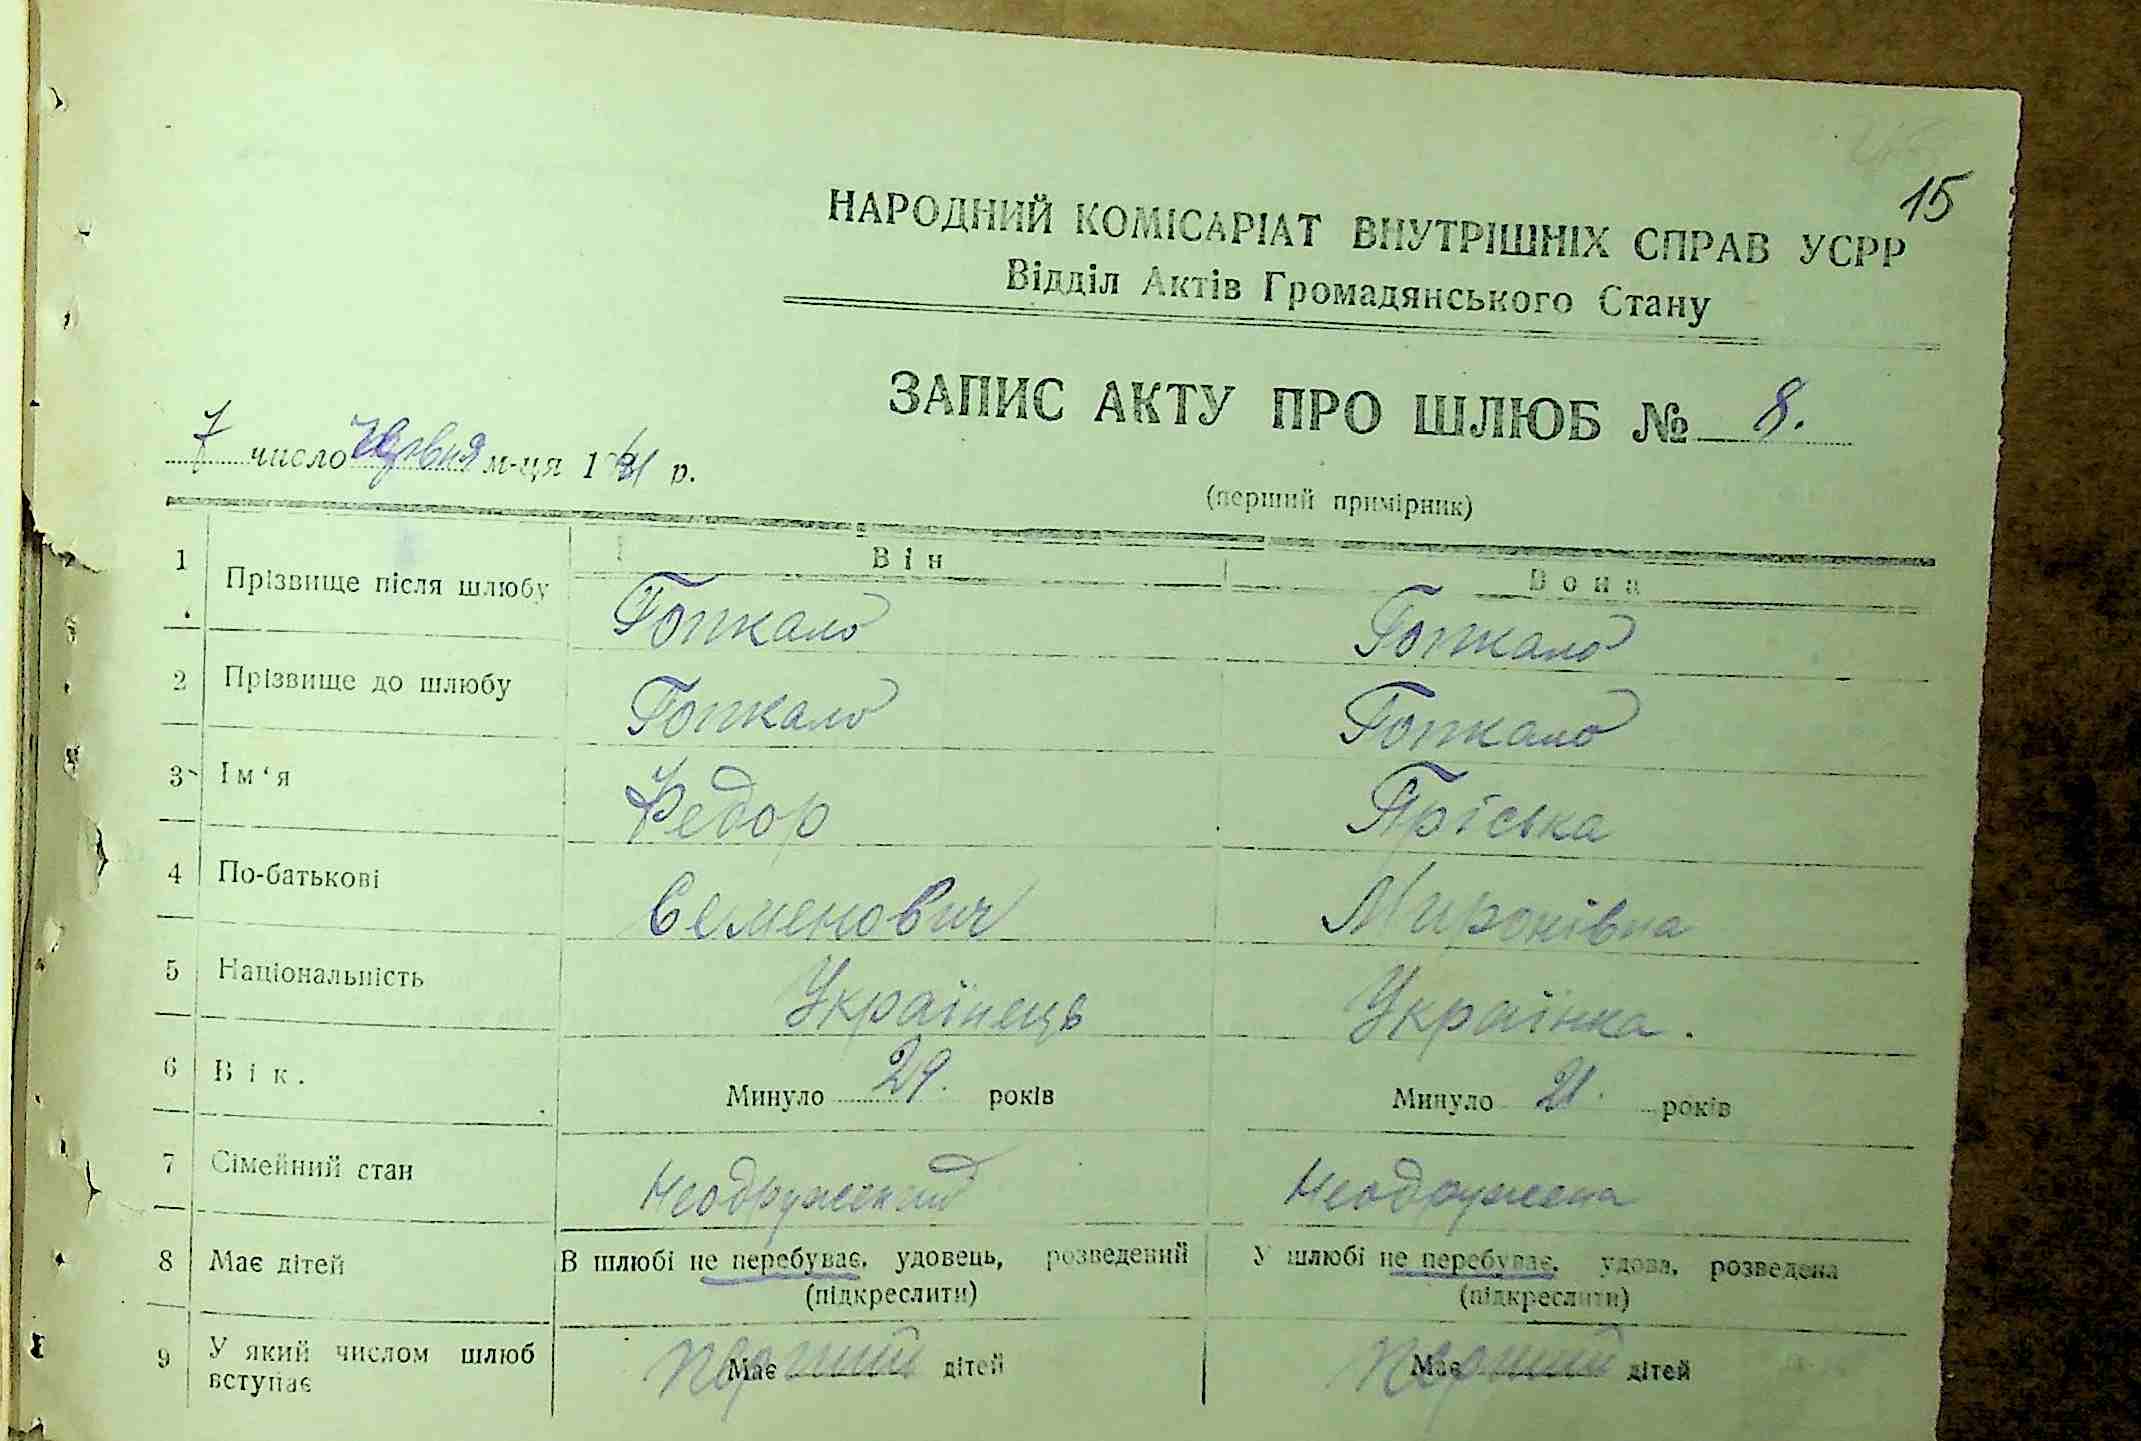 15
НАРОДНИЙ КОМІСАРІАТ ВНУТРІШНІХ СПРАВ УСРР
Відділ Актів Громадянського Стану
ЗАПИС АКТУ ПРО ШЛЮБ № 8.
7 число червня м-ця р.
(перший примірник)
Він Вона
1 Прізвище після шлюбу Гопкало Гопкало
2 Прізвище до шлюбу Гопкало Гопкало
3 Ім‘я Федор Пріська
4 По-батькові Семенович Миронівна
5 Національність Українець Українка.
6 Вік. Минуло 29. років Минуло 21. років
7 Сімейний стан Неодружений Неодружена
8 Має дітей В шлюбі не перебуває, удовець, розведений У шлюбі не перебуває, удова, розведена
(підкреслити) (підкреслити)
9 У який числом шлюб вступає перший Має дітей перший Має дітей